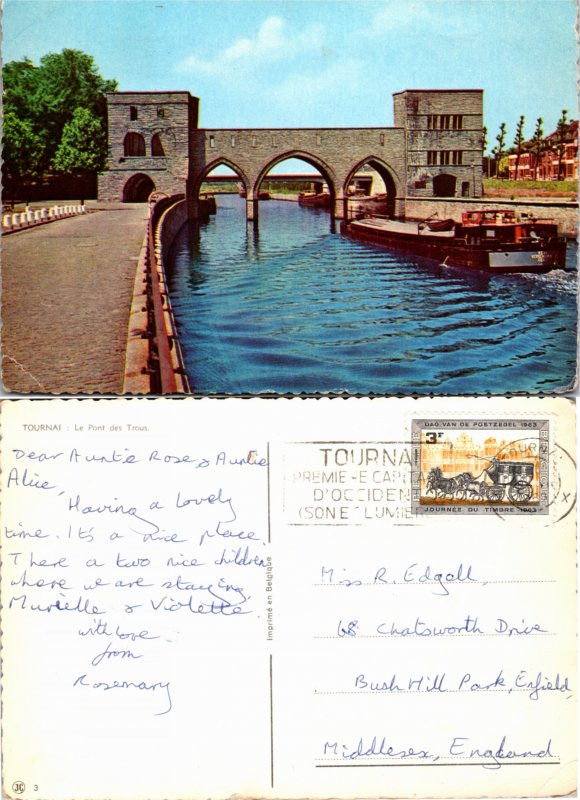 TOURNAI : Le Pont des Trous.
Dear Auntie Rose & Auntie
Alice,
Having a lovely
time. It's a nice place.
There a two nice children
where we are staying,
Murielle & Violette.
with love
from
Rosemary
Imprimé en Belgique
TOURNAI
PREMIE E CAPITA
D'OCCIDEN
(SON E LUMIE
DAG VAN DE POSTZEGEL 1963
3F
JOURNÉE DU TIMBRE 1963
Miss R. Edgall,
68 Chatsworth Drive
Bush Hill Park, Enfield,
Middlesex, England
3